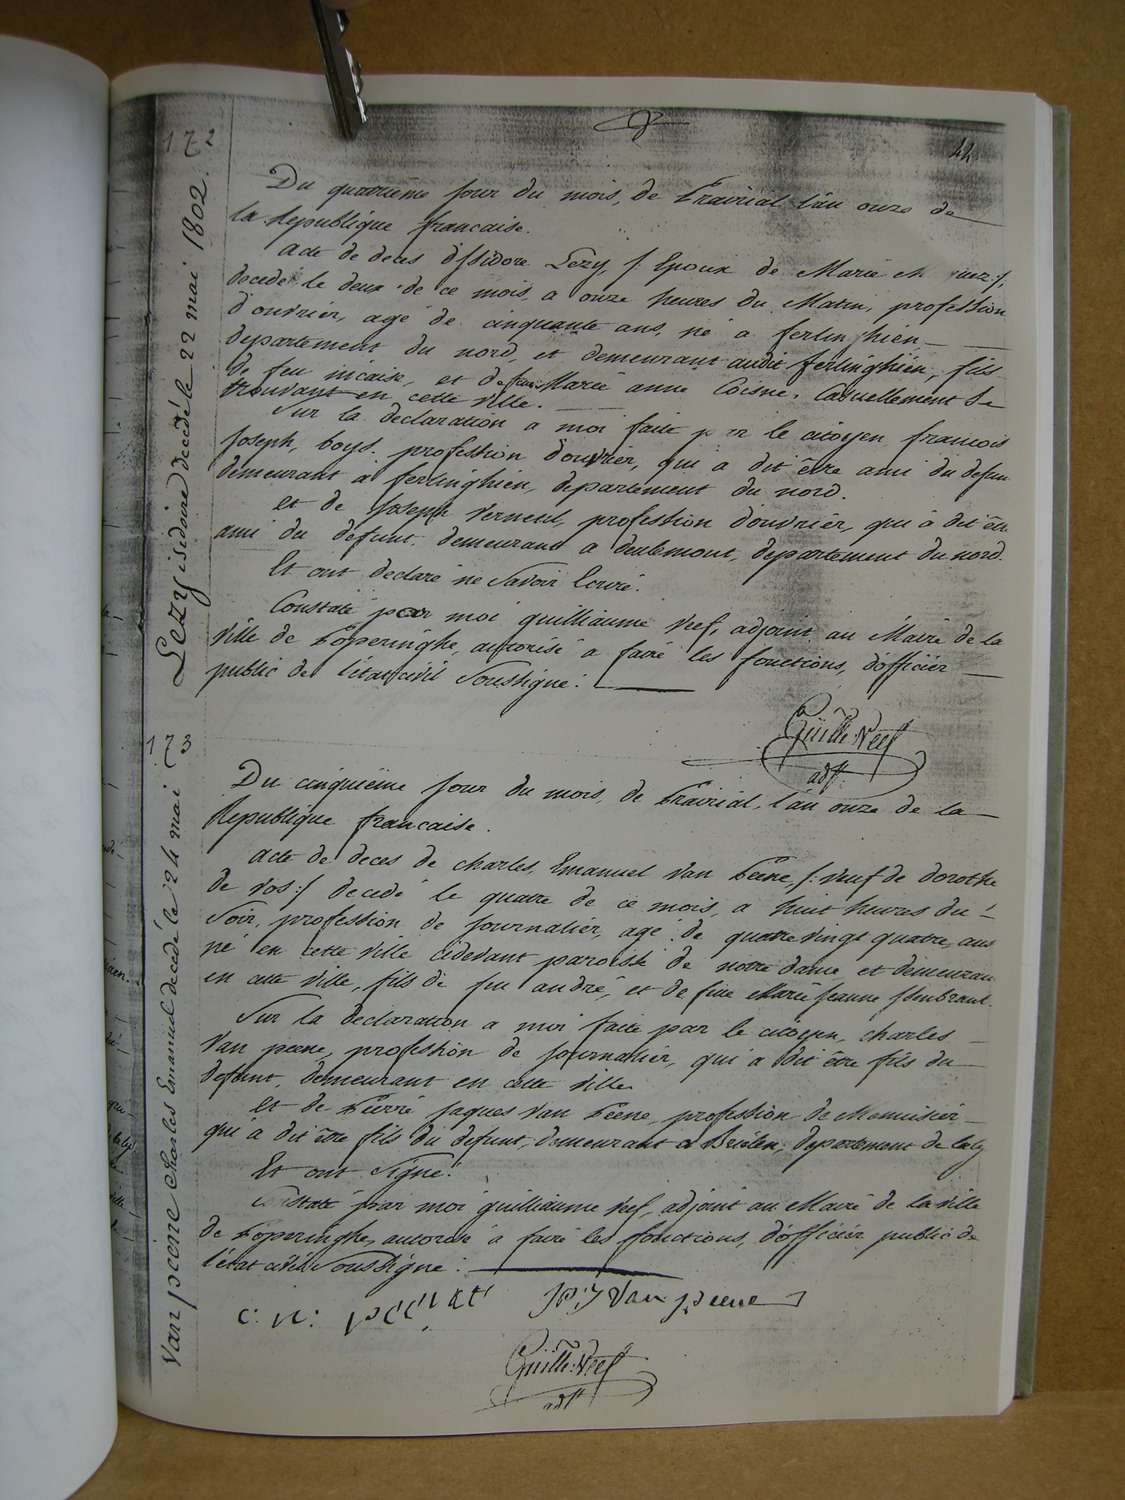 44
172
Lezy isidoire decedé le 22 mai 1802.
Du quatrieme jour du mois, de Prairial l'an onze de
la Republique francaise.
acte de deces d'Issidore Lezy, /: Epoux de Marie :/,
decedé le deux de ce mois, a onze heures du Matin, profession
d'ouvrier, agé de cinquante ans, né a ferlinghien
departement du nord, et demeurant audit ferlinghien, fils
de feu incaise, et de feue Marie anne Coisne. Casuellement se
trouvant en cette ville.
Sur la declaration a moi faite par le citoyen francois
Joseph, boys. profession d'ouvrier, qui a dit être ami du defun
demeurant a ferlinghien, departement du nord.
et de Joseph Verneul, profession d'ouvrier, qui a dit être
ami du defunt. demeurant a deulemont, departement du nord.
Et ont declaré ne savoir Ecrire.
Constaté par moi guilliaume Neef, adjoint au Maire de la
ville de Poperinghe, autorisé a faire les fonctions, d'officier
public de l'état civil Soussigné:
Guille. Neef
adjt.
173
Van peene charles Emanuel decedé le 24 mai
Du cinquieme jour du mois, de Prairial, l'an onze de la
Republique francaise.
acte de deces de charles, Emanuel Van Peene, /: veuf de dorothe
de vos:/ decedé le quatre de ce mois, a huit heures du
Soir, profession de journalier, agé de quatre vingt quatre, ans
né en cette ville cidevant paroisse de notre dame, et demeuran
en cette ville, fils de feu andré, et de feue Marie Jeanne
Sur la declaration a moi faite par le citoyen, charles
Van peene, profession de journalier, qui a dit être fils du
defunt, demeurant en cette ville.
et de Pierre jaques Van Peene, profession de Menuisier
qui a dit être fils du defunt, demeurant a Brielen, departement de lalys
Et ont Signé.
Constaté par moi guilliaume Neef, adjoint au Maire de la ville
de Poperinghe, autorisé a faire les fonctions, d'officier public de
l'état civil Soussigné:
PJ Van peene
Guille. Neef
adjt